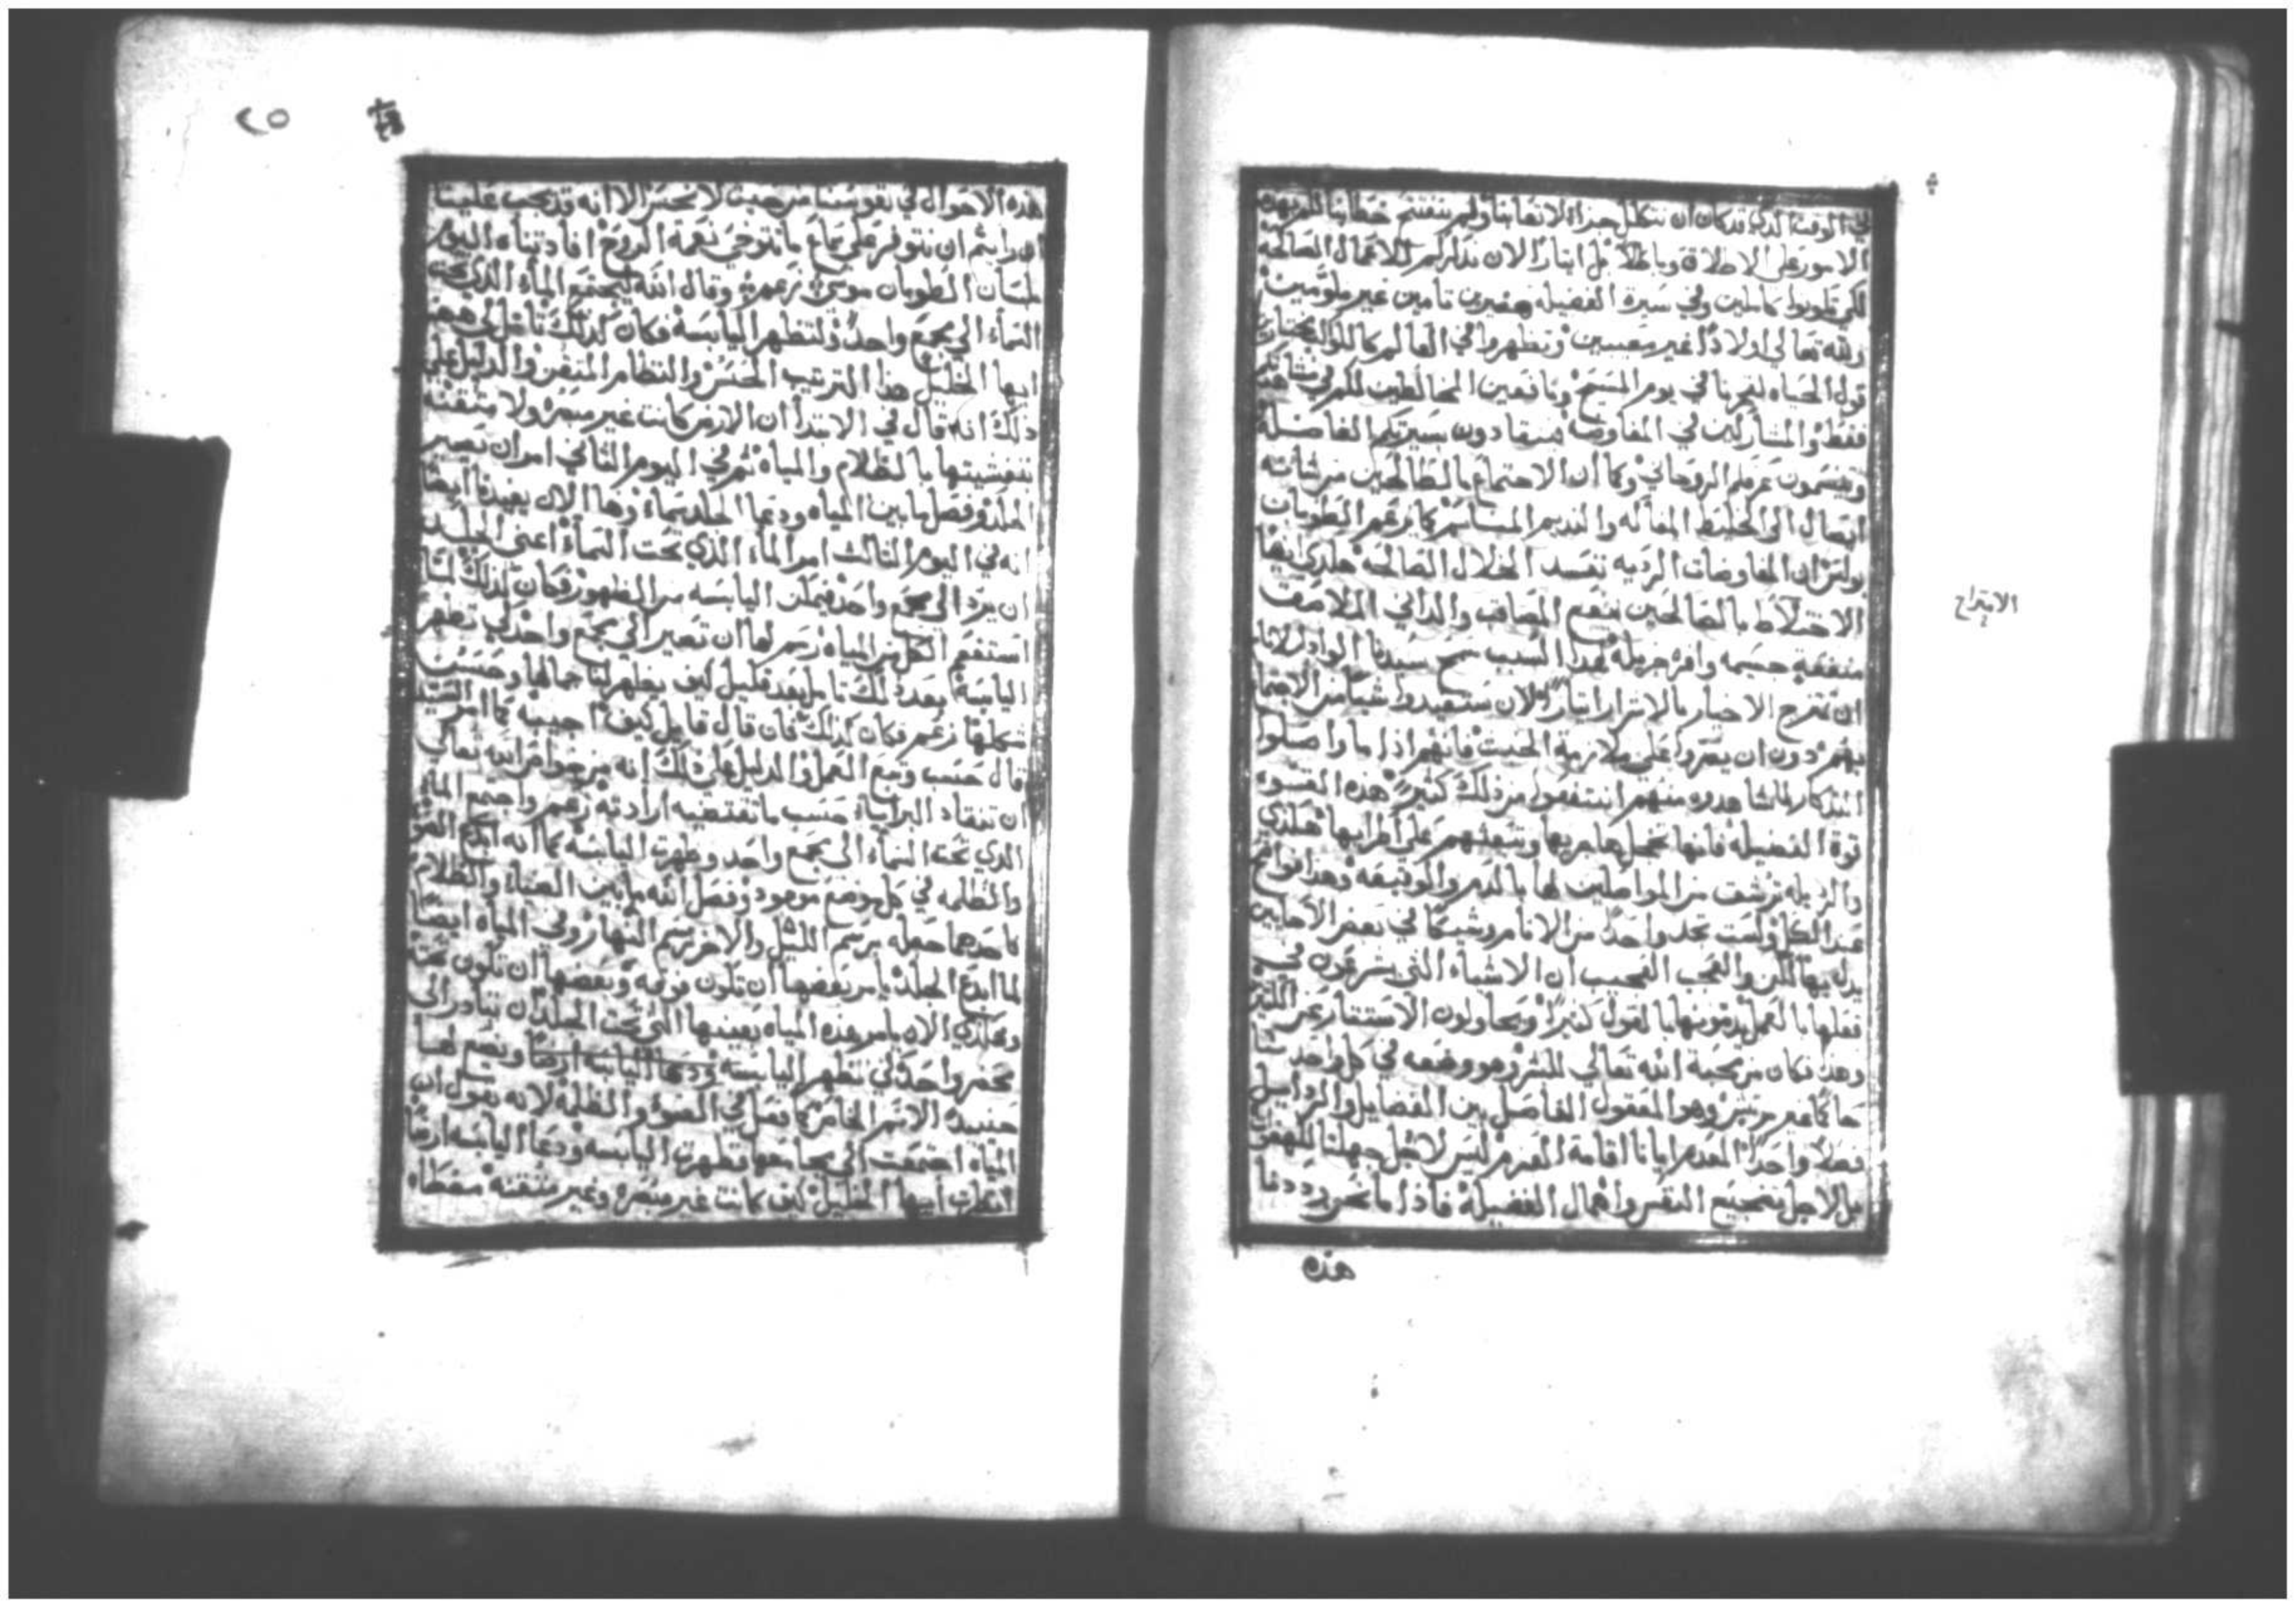 في الوقت الذي قد كان ان نتكلل جزاء لاتعابنا ولم نفتتح خطابنا لكم بهذه
الامور على الاطلاق وباطلا بل ايثارا لان نذكركم للاعمال الصالحه
لكي تكونوا كاملين وفي سيرة الفضيله تامين غير ملومين
ولله تعالى اولادا غير معيبين وتظهروا في العالم كالكواكب
قول الحياه لفخرنا في يوم المسيح ونافعين المخالطين لكم
فقط والمشاركين في المفاوضه منقادون بسيرتكم الفاضله
الروحاني وكما ان الاجتماع بالصالحين من شانه
ايصال الى الخليط المفاكه والنديم كما زعم الطوبان
بولس ان المفاوضات الرديه تفسد الخلال الصالحه هكذي ايضا
الاختلاط بالصالحين ينفع المصاقب والداني الملاصق
منفعة جسيمه وافره جزيله لهذا السبب سمح سيدنا
ان تمتزج الاخيار بالاشرار ايثارا لان يستفيدوا شيا من الاجتماع
بهم دون ان يصروا على ملازمة الخبث فانهم اذا ما واصلوا
التذكار لما شاهدوه منهم انتفعوا من ذلك كثيرا هذه
قوة الفضيله فانها تخجل هاربيها وتبعثهم على اطرايها هكذي
والرذيله ترشق من المواصلين لها بالذم والوقيعه وهذا
عند الكل ولست تجد واحدا من الانام وشيكا في بعض الاحايين
والعجب العجيب ان الاشياء التي يشرعون في
فعلها بالعمل يذمونها بالقول كثيرا ويحاولون الاستتار عن الكثير
وهذا فكان من محبة الله تعالى للبشر وهو وضعه في كل واحد منا
حاكما غير مرتش وهو المعقول الفاصل بين الفضايل والرذايل
فصلا واحدا ايانا اقامة العزم ليس لاجل جهلنا
بل لاجل تضجيع النفس واهمال الفضيله فاذا ما نحن رددنا
هذه
الامتزاج
٢٥
هذه الاحوال في نفوسنا من حيث لا نحس الا انه قد يجب علينا
ان رايتم ان نتوفر على سماع ما تتوخى نعمة الروح افادتناه اليوم
بلسان الطوبان موسى زعم وقال الله ليجتمع الماء الذي تحت
السماء الى مجمع واحد ولتظهر اليابسه فكان كذلك تامل لي ههنا
ايها الخليل هذا الترتيب الحسن والنظام المتقن والدليل على
ذلك انه قال في الابتدا ان الارض كانت غير مبصره ولا متقنه
بتغشيتها بالظلام والمياه ثم في اليوم الثاني امر ان يصير
الجلد وفصل ما بين المياه ودعا الجلد سماء وها الان يفيدنا ايضا
انه في اليوم الثالث امر الماء الذي تحت السماء اعني الجلد
ان يرد الى مجمع واحد فيمكن اليابسه من الظهور فكان كذلك لما
استنقع الكل من المياه رسم لها ان تصير الى مجمع واحد لكي تظهر
اليابسه بعد ذلك تامل بعد قليل كيف يظهر لنا جمالها وحسن
شكلها زعم فكان كذلك فان قال قايل كيف اجيبه كما امر السيد
قال حسب وتبع العمل والدليل على ذلك انه من خواص الله تعالى
ان تنقاد البرايا حسب ما تقتضيه ارادته زعم واجتمع الماء
الذي تحت السماء الى مجمع واحد وظهرت اليابسه كما انه ابدع الضوء
والظلمه في كل موضع موجود وفصل الله ما بين الضياء والظلام
فاحدهما جعله برسم الليل والاخر برسم النهار وفي المياه ايضا
لما ابدع الجلد يامر بعضها ان تكون فوقه وبعضها ان تكون تحته
وهكذي الان يامر هذه المياه بعينها التي تحت الجلد ان تبادر الى
محضر واحد لكي تظهر اليابسه ودعا اليابسه ارضا ويضع لها
حينيذ الاسم الخاص كما فعل في الضوء والظلمه لانه يقول ان
المياه اجتمعت الى مجامعها وظهرت اليابسه ودعا اليابسه ارضا
ارايت ايها الخليل كيف كانت غير مبصره وغير متقنه مغطاه